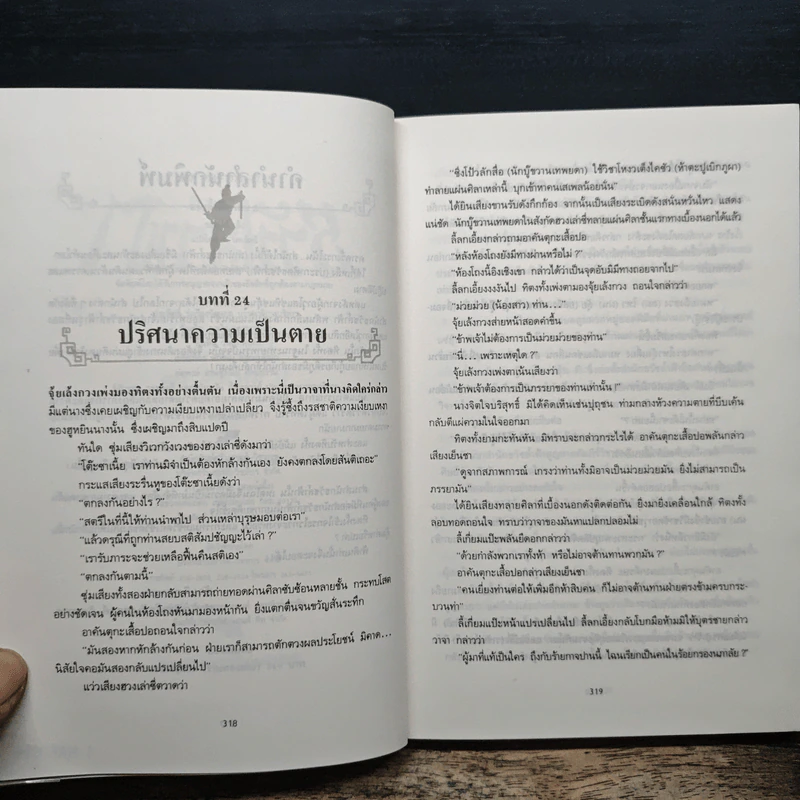 บทที่ 24
ปริศนาความเป็นตาย
จุ้ยเล้งกวงเพ่งมองทิตงทั้งอย่างตื้นตัน เนื่องเพราะนี่เป็นวาจาที่นางคิดใคร่กล่าว
มีแต่นางซึ่งเคยเผชิญกับความเงียบเหงาเปล่าเปลี่ยว จึงรู้ซึ้งถึงรสชาติความเงียบเหงา
ของฮูหยินนางนั้น ซึ่งเผชิญมาถึงสิบแปดปี
ทันใด ซุ่มเสียงวิเวกวังเวงของฮวงเล่าซี่ดังมาว่า
"โต๊ะชาเนี้ย เราท่านมิจำเป็นต้องหักล้างกันเอง ยังคงตกลงโดยสันติเถอะ"
กระแสเสียงระรื่นหูของโต๊ะชาเนี้ยดังว่า
"ตกลงกันอย่างไร ?"
"สตรีในที่นี้ให้ท่านนำพาไป ส่วนเหล่าบุรุษมอบต่อเรา"
"แล้วดรุณีที่ถูกท่านสยบสติสัมปชัญญะไว้เล่า ?"
"เรารับภาระจะช่วยเหลือฟื้นคืนสติเอง"
"ตกลงกันตามนี้"
ซุ่มเสียงทั้งสองฝ่ายกลับสามารถถ่ายทอดผ่านศิลาซับซ้อนหลายชั้น กระทบโสต
อย่างชัดเจน ผู้คนในห้องโถงหันมามองหน้ากัน ยิ่งแตกตื่นจนขวัญสั่นระทึก
อาคันตุกะเสื้อปอถอนใจกล่าวว่า
"มันสองหากหักล้างกันก่อน ฝ่ายเราก็สามารถตักตวงผลประโยชน์ มิคาด...
นิสัยใจคอมันสองกลับแปรเปลี่ยนไป"
แว่วเสียงฮวงเล่าซี่ตวาดว่า
318
"ซึงโป้วลักสื่อ (นักบู๊ขวานเทพยดา) ใช้วิชาโหงวเต็งไคซัว (ห้าตะปูเบิกภูผา)
ทำลายแผ่นศิลาเหล่านี้ บุกเข้าหาคนเสเพลน้อยนั่น"
ได้ยินเสียงขานรับดังกึกก้อง จากนั้นเป็นเสียงระเบิดดังสนั่นหวั่นไหว แสดง
แน่ชัด นักบู๊ขวานเทพยดาในสังกัดฮวงเล่าซี่ทลายแผ่นศิลาชั้นแรกทางเบื้องนอกได้แล้ว
ลี้ลกเอี้ยงกล่าวถามอาคันตุกะเสื้อปอ
"หลังห้องโถงยังมีทางผ่านหรือไม่ ?"
"ห้องโถงนี้อิงเชิงเขา กล่าวได้ว่าเป็นจุดอับมิมีทางถอยจากไป"
ลี้ลกเอี้ยงงงงันไป ทิตงทั้งเพ่งตามองจุ้ยเล้งกวง ถอนใจกล่าวว่า
"ม่วยม่วย (น้องสาว) ท่าน..."
จุ้ยเล้งกวงส่ายหน้าสอดคำขึ้น
"ข้าพเจ้าไม่ต้องการเป็นม่วยม่วยของท่าน"
"นี่... เพราะเหตุใด ?"
จุ้ยเล้งกวงเพ่งตาเน้นเสียงว่า
"ข้าพเจ้าต้องการเป็นภรรยาของท่านเท่านั้น !"
นางจิตใจบริสุทธิ์ มิได้คิดเห็นเช่นปุถุชน ท่ามกลางห้วงความตายที่บีบเค้น
กลับตีแผ่ความในใจออกมา
ทิตงทั้งยามกะทันหัน มิทราบจะกล่าวกระไรได้ อาคันตุกะเสื้อปอพลันกล่าว
เสียงเย็นชา
"ดูจากสภาพการณ์ เกรงว่าท่านทั้งมิอาจเป็นม่วยม่วยมัน ยิ่งไม่สามารถเป็น
ภรรยามัน"
ได้ยินเสียงทลายศิลาที่เบื้องนอกดังติดต่อกัน ยิ่งมายิ่งเคลื่อนใกล้ ทิตงทั้ง
ลอบทอดถอนใจ ทราบว่าวาจาของมันหาแปลกปลอมไม่
ลี้เกี่ยมแป๊ะพลันยืดอกกล่าวว่า
"ด้วยกำลังพวกเราทั้งห้า หรือไม่อาจต้านทานพวกมัน ?"
อาคันตุกะเสื้อปอกล่าวเสียงเย็นชา
"คนเยี่ยงท่านต่อให้เพิ่มอีกห้าสิบคน ก็ไม่อาจต้านทานฝ่ายตรงข้ามครบกระ-
บวนท่า"
ลี้เกี่ยมแป๊ะหน้าแปรเปลี่ยนไป ลี้ลกเอี้ยงกลับโบกมือห้ามมิให้บุตรชายกล่าว
วาจา กล่าวว่า
"ผู้มาที่แท้เป็นใคร ถึงกับร้ายกาจปานนี้ ไฉนเรียกเป็นคนในร้อยกรองนภาลัย ?"
319